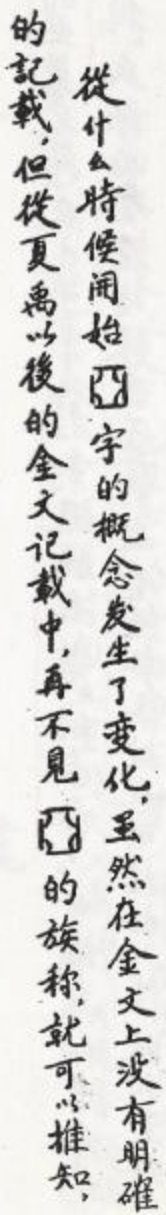 從什么時候開始字的概念发生了变化，虽然在金文上没有明確
的記載，但從夏禹以後的金文记載中，再不見的族称，就可以推知，